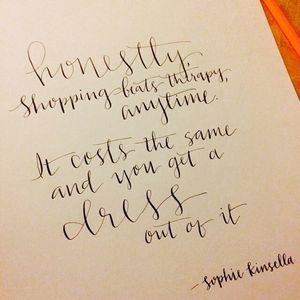 honestly,
shopping beats therapy,
anytime.
It costs the same
and you get a
dress
out of it
- sophie kinsella